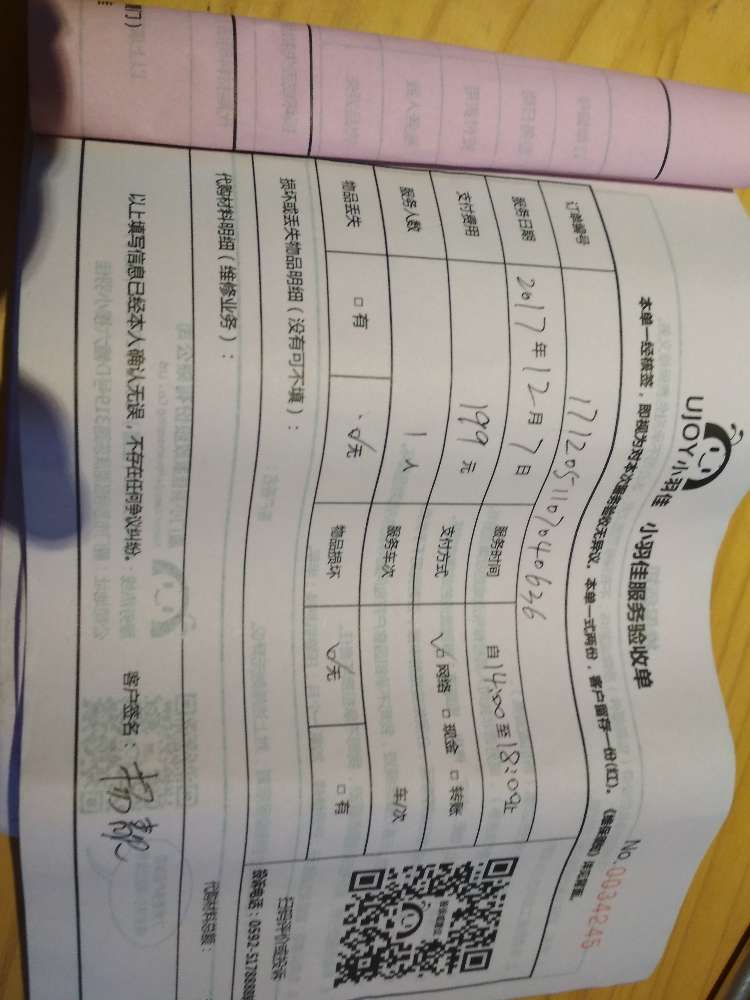 UJOY小羽佳 小羽佳服务验收单
No.0034245
本单一经核签，即视为对本次服务验收无异议。本单一式两份，客户留存一份(红)。
订单编号 1712051107040636
服务日期 2017年12月7日 服务时间 自14:00至18:00止
支付费用 199元 支付方式 ☑网络 □现金 □转账
服务人数 1人 服务车次 车/次
物品丢失 □有 ☑无 物品损坏 ☑无 □有
扫码评价或投诉
投诉电话：0592-5178888
损坏或丢失物品明细（没有可不填）：
代购材料明细（维修业务）：
代购材料总额：
以上填写信息已经本人确认无误，不存在任何争议纠纷。
客户签名：